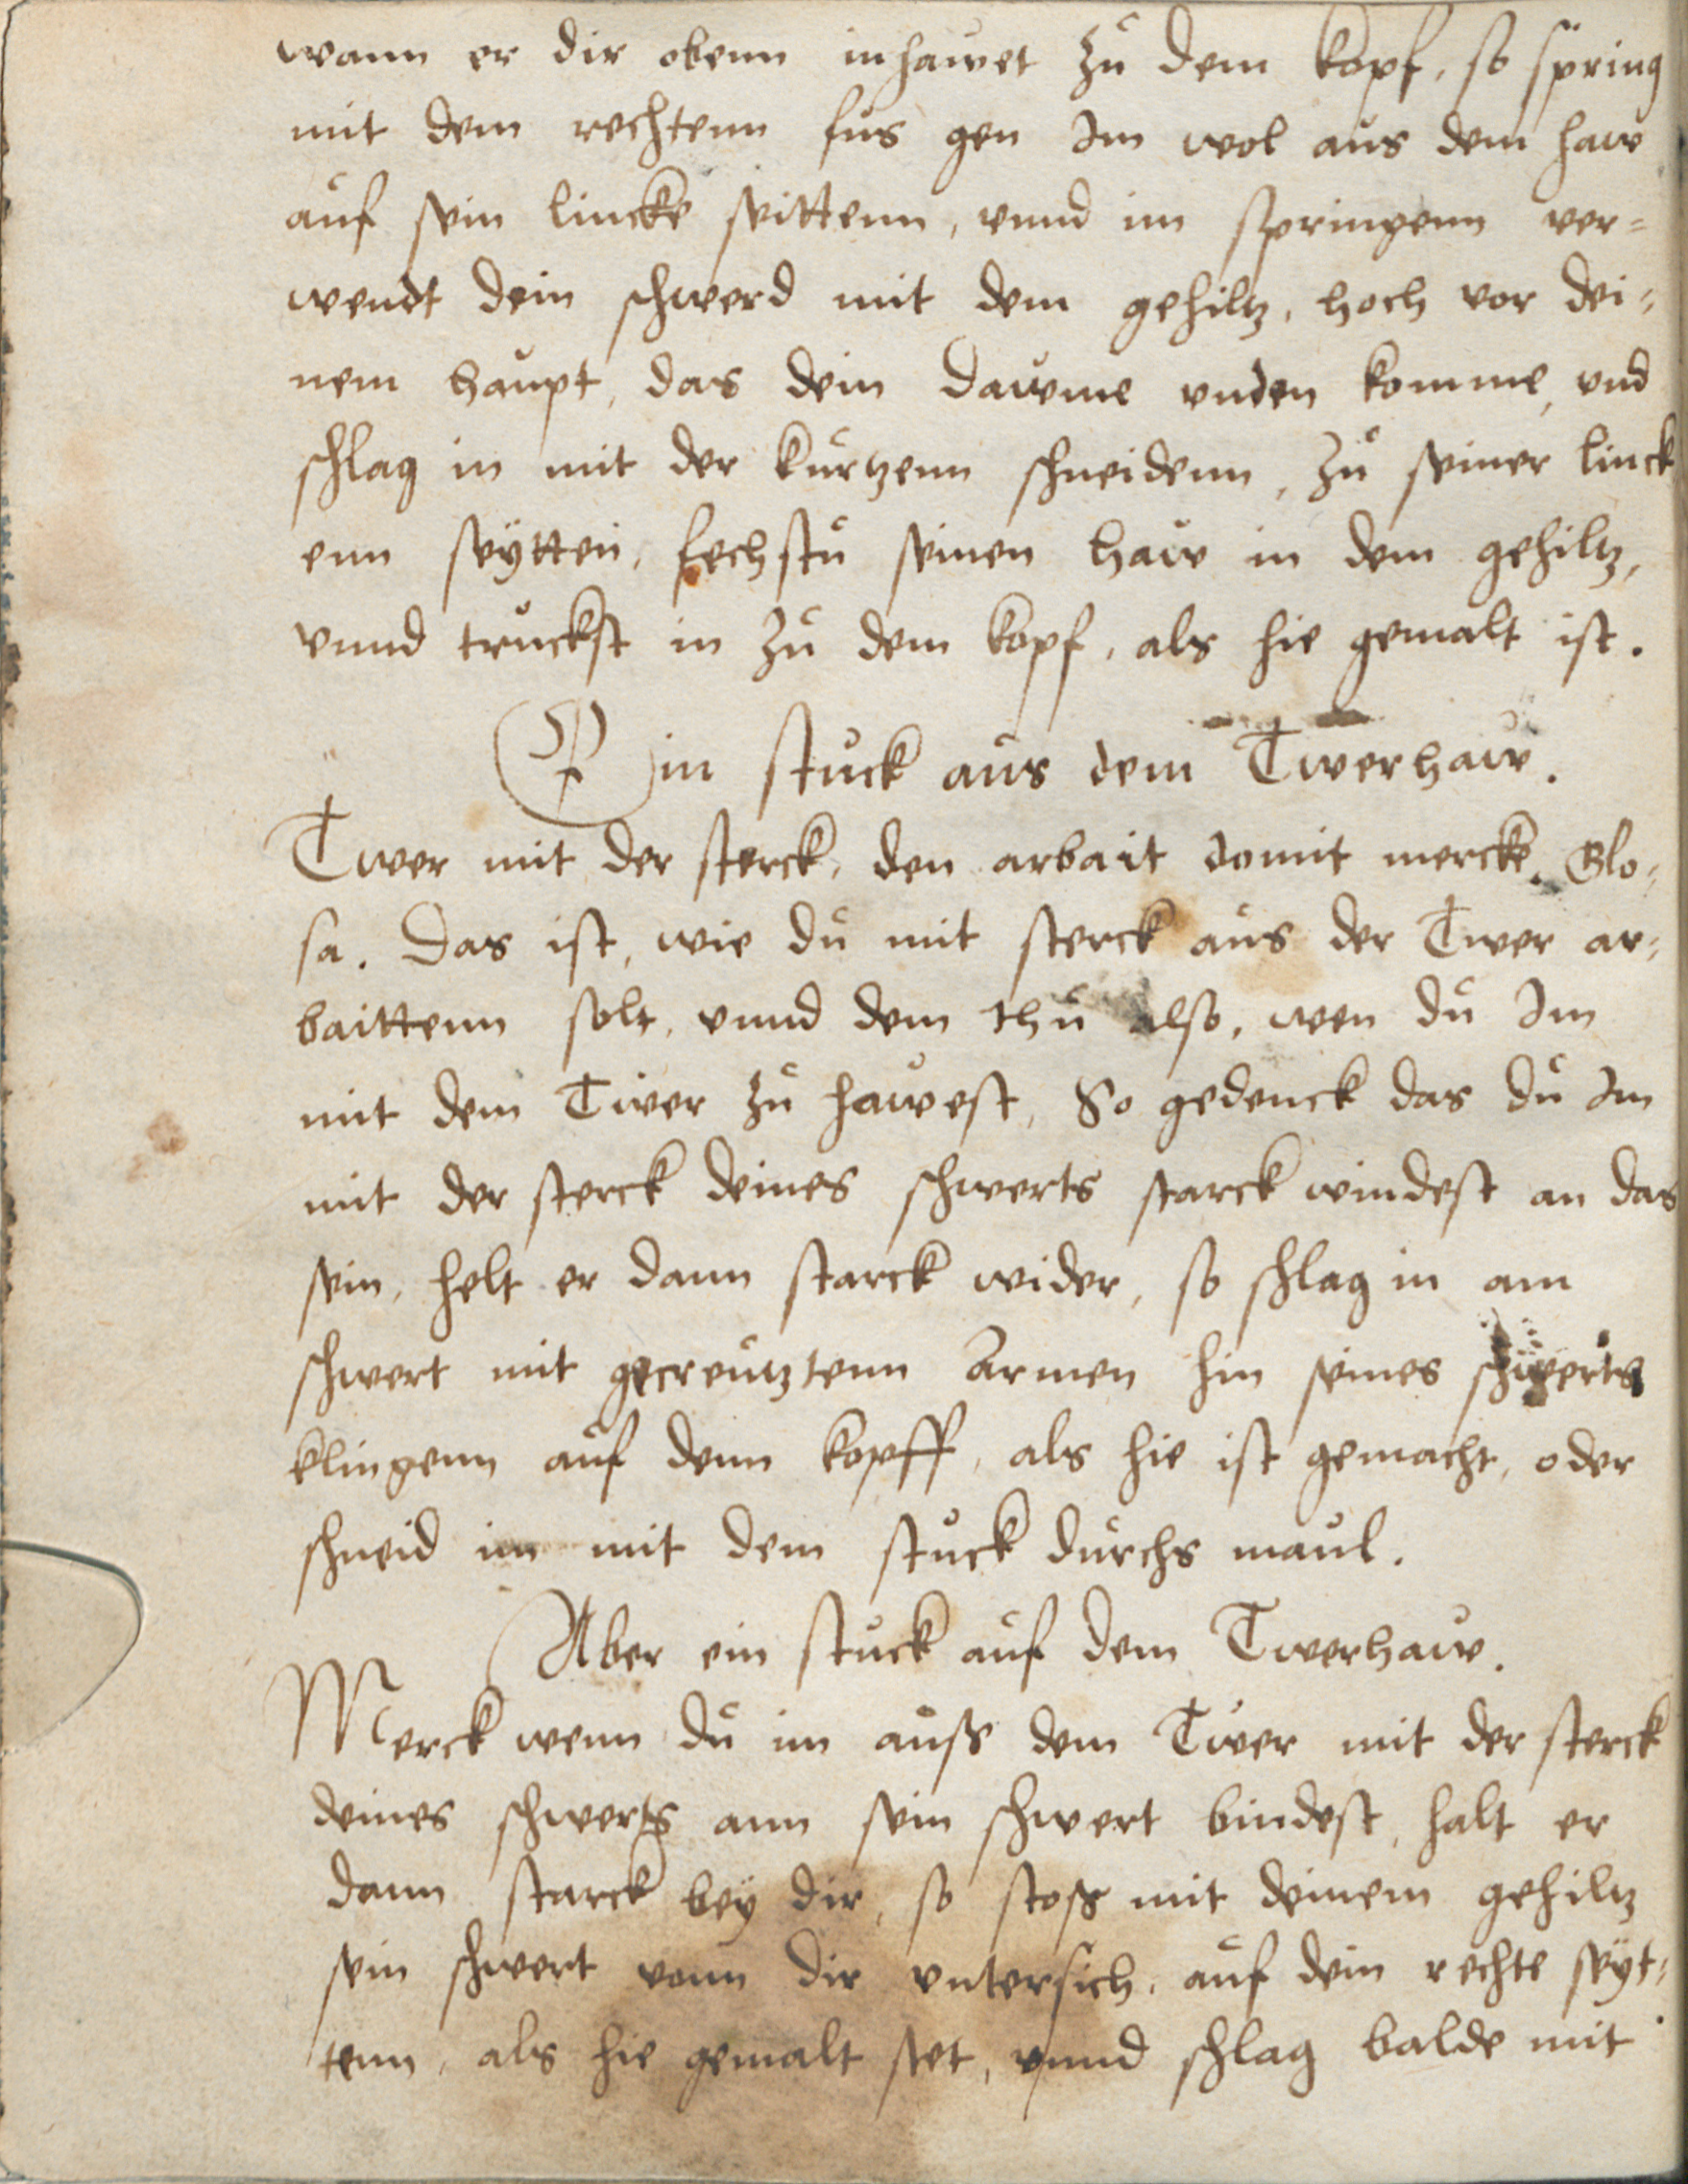 wann er dir obenn inhawet zů dem kopf, so spring
mit dem rechtenn fus gen Im wol aus dem haw
aůf sein lincke seittenn, vnnd im springenn ver=
wendt dein schwerd mit dem gehiltz, hoch vor dei=
nem haůpt, das dein dawme vnden komme, vnd
schlag in mit der kůrtzenn schneidenn, zů seiner linck
enn seÿtten, fechstů seinen haw in dem gehiltz,
vnnd trůckst in zů dem kopf, als hie gemalt ist.
Ein stůck aůs dem Twerhaw.
Twer mit der sterck, den arbait domit mercke. Glo=
sa. Das ist, wie dů mit sterck aůs der Twer ar=
baittenn solt, vnnd dem thů also, wen dů Im
mit dem Twer zů hawest, So gedenck das dů Im
mit der sterck deines schwerts starck windest an das
sein, helt er dann starck wider, so schlag in am
schwert mit gecreůtztenn Armen hin seines schwerts
klingenn aůf denn kopff, als hie ist gemacht, oder
schneid im mit dem stůck důrchs maůl.
Aber ein stůck aůf dem Twerhaw.
Merck wenn dů im aůß dem Twer mit der sterck
deines schwerts ann sein schwert bindest, halt er
dann starck beÿ dir, so stoß mit deinem gehiltz
sein schwert vonn dir vntersich, aůf dein rechte seÿt=
tenn, als hie gemalt stet, vnnd schlag balde mit